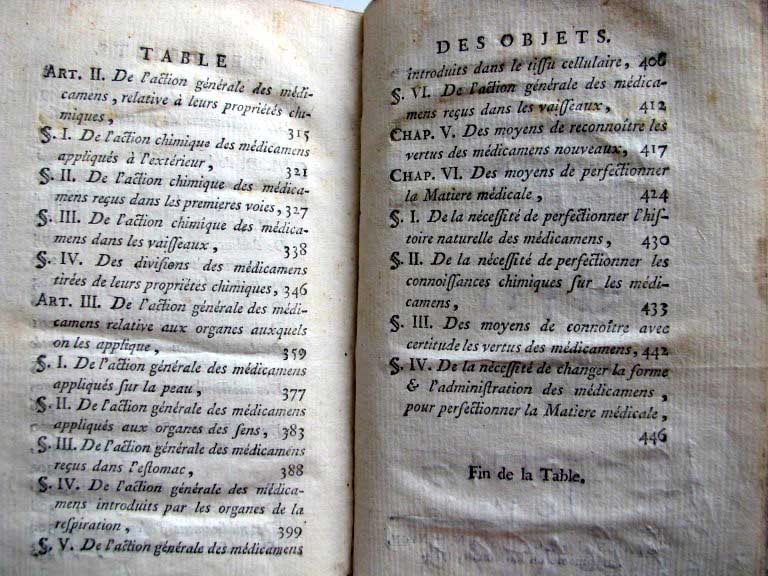 TABLE
ART. II. De l'action générale des médi-
camens, relative à leurs propriétés chi-
miques, 315
§. I. De l'action chimique des médicamens
appliqués à l'extérieur, 321
§. II. De l'action chimique des médica-
mens reçus dans les premieres voies, 327
§. III. De l'action chimique des médica-
mens dans les vaiſſeaux, 338
§. IV. Des diviſions des médicamens
tirées de leurs propriétés chimiques, 346
ART. III. De l'action générale des médi-
camens relative aux organes auxquels
on les applique, 359
§. I. De l'action générale des médicamens
appliqués ſur la peau, 377
§. II. De l'action générale des médicamens
appliqués aux organes des ſens, 383
§. III. De l'action générale des médicamens
reçus dans l'eſtomac, 388
§. IV. De l'action générale des médica-
mens introduits par les organes de la
reſpiration, 399
§. V. De l'action générale des médicamens
DES OBJETS.
introduits dans le tiſſu cellulaire, 406
§. VI. De l'action générale des médica-
mens reçus dans les vaiſſeaux, 412
CHAP. V. Des moyens de reconnoître les
vertus des médicamens nouveaux, 417
CHAP. VI. Des moyens de perfectionner
la Matiere médicale, 424
§. I. De la néceſſité de perfectionner l'hiſ-
toire naturelle des médicamens, 430
§. II. De la néceſſité de perfectionner les
connoiſſances chimiques ſur les médi-
camens, 433
§. III. Des moyens de connoître avec
certitude les vertus des médicamens, 442
§. IV. De la néceſſité de changer la forme
& l'adminiſtration des médicamens,
pour perfectionner la Matiere médicale,
446
Fin de la Table.